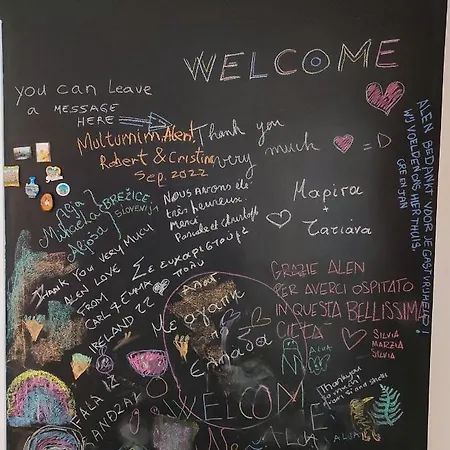 WELCOME
YOU CAN LEAVE
A MESSAGE
HERE
Multumim, Alen!
Robert & Cristina
Sep. 2022
Thank you
very much
=D
ALEN BEDANKT VOOR JE GASTVRIJHEID!
WIJ VOELDEN ONS HIER THUIS.
CRE EN JAN
Alja
Mihaela
Aljoša
BREŽICE
SLOVENIJA
Nous avons été
très heureux.
Merci
Pascale et Christophe
Μαρίτα
+
Τατιάνα
Thank You VERY MUCH
ALEN LOVE
FROM
CARL +
IRELAND 22
Σε ευχαριστούμε
πολύ
Με αγάπη
από
Ελλάδα
GRAZIE ALEN
PER AVERCI OSPITATO
IN QUESTA BELLISSIMA
CITTÀ
SILVIA
MARZIA
SILVIA
FALA IZ
WELCOME
Thank you
so much
ALJA